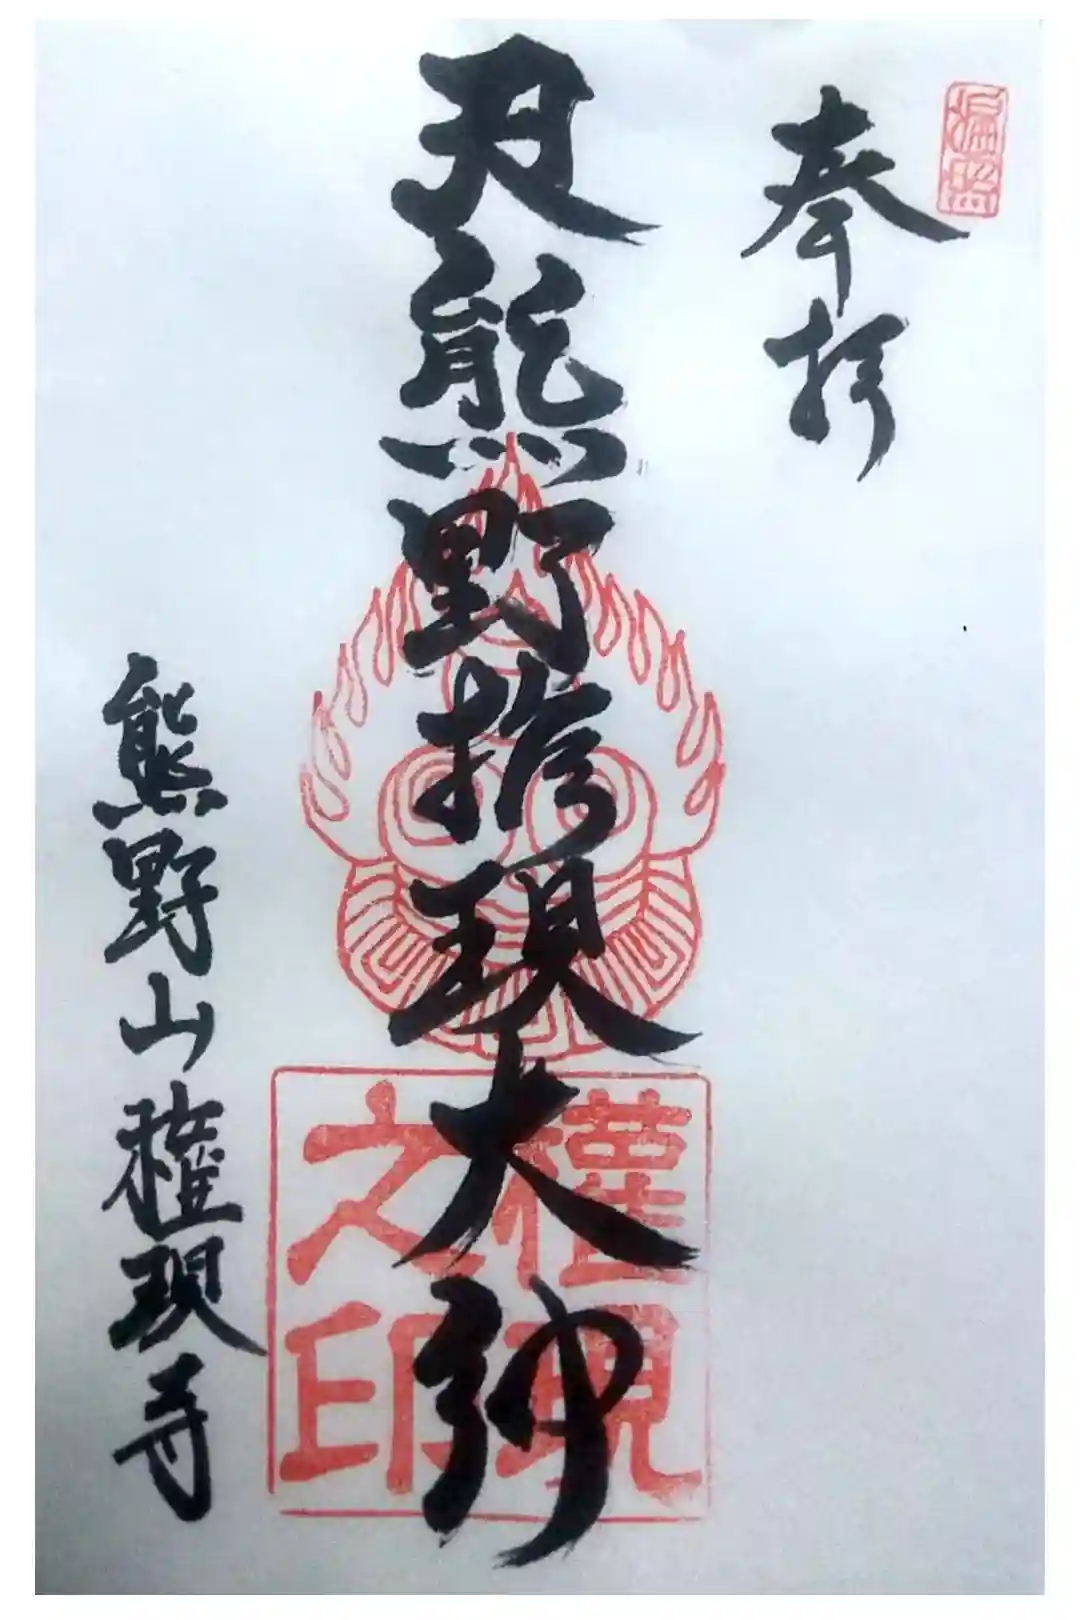 遍照
奉拝
熊野権現大神
權現
之印
熊野山権現寺